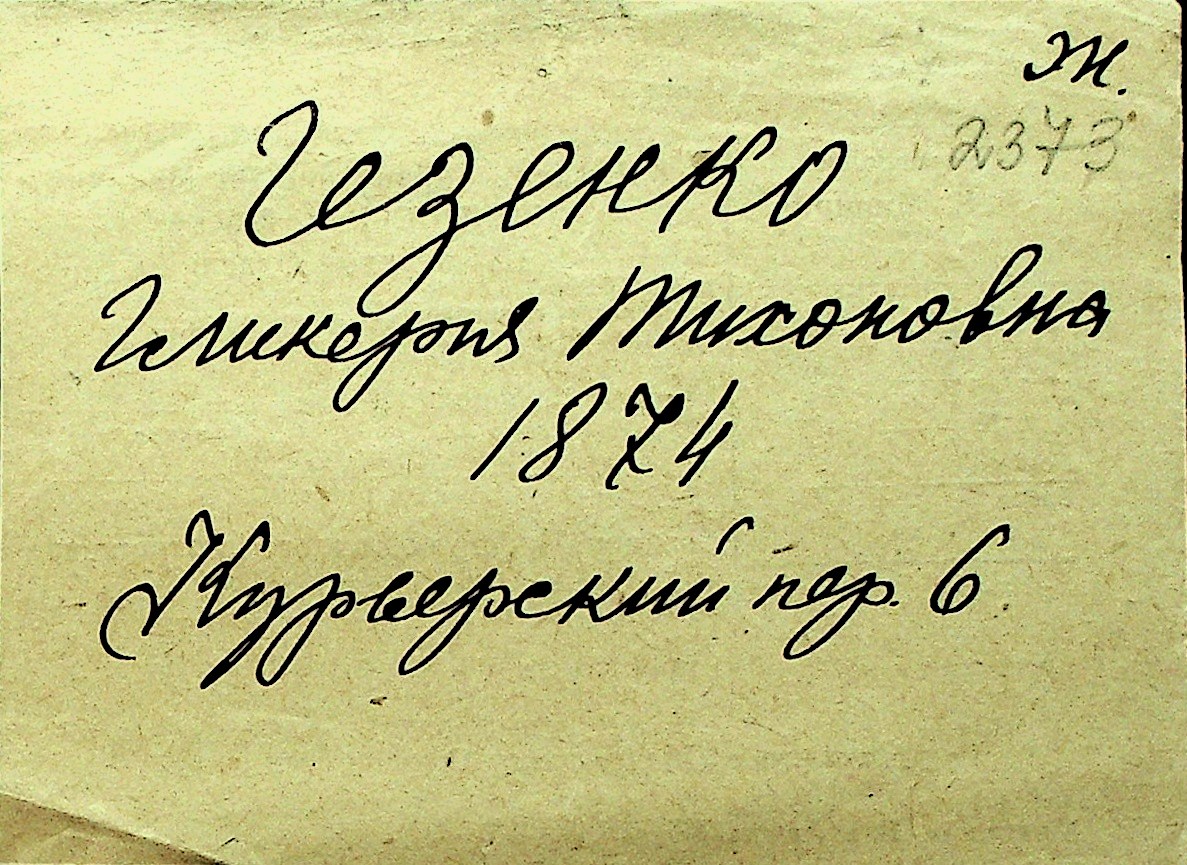 ж.
2373
Гезенко
Гликерия Тихоновна
1874
Курьерский пер. 6